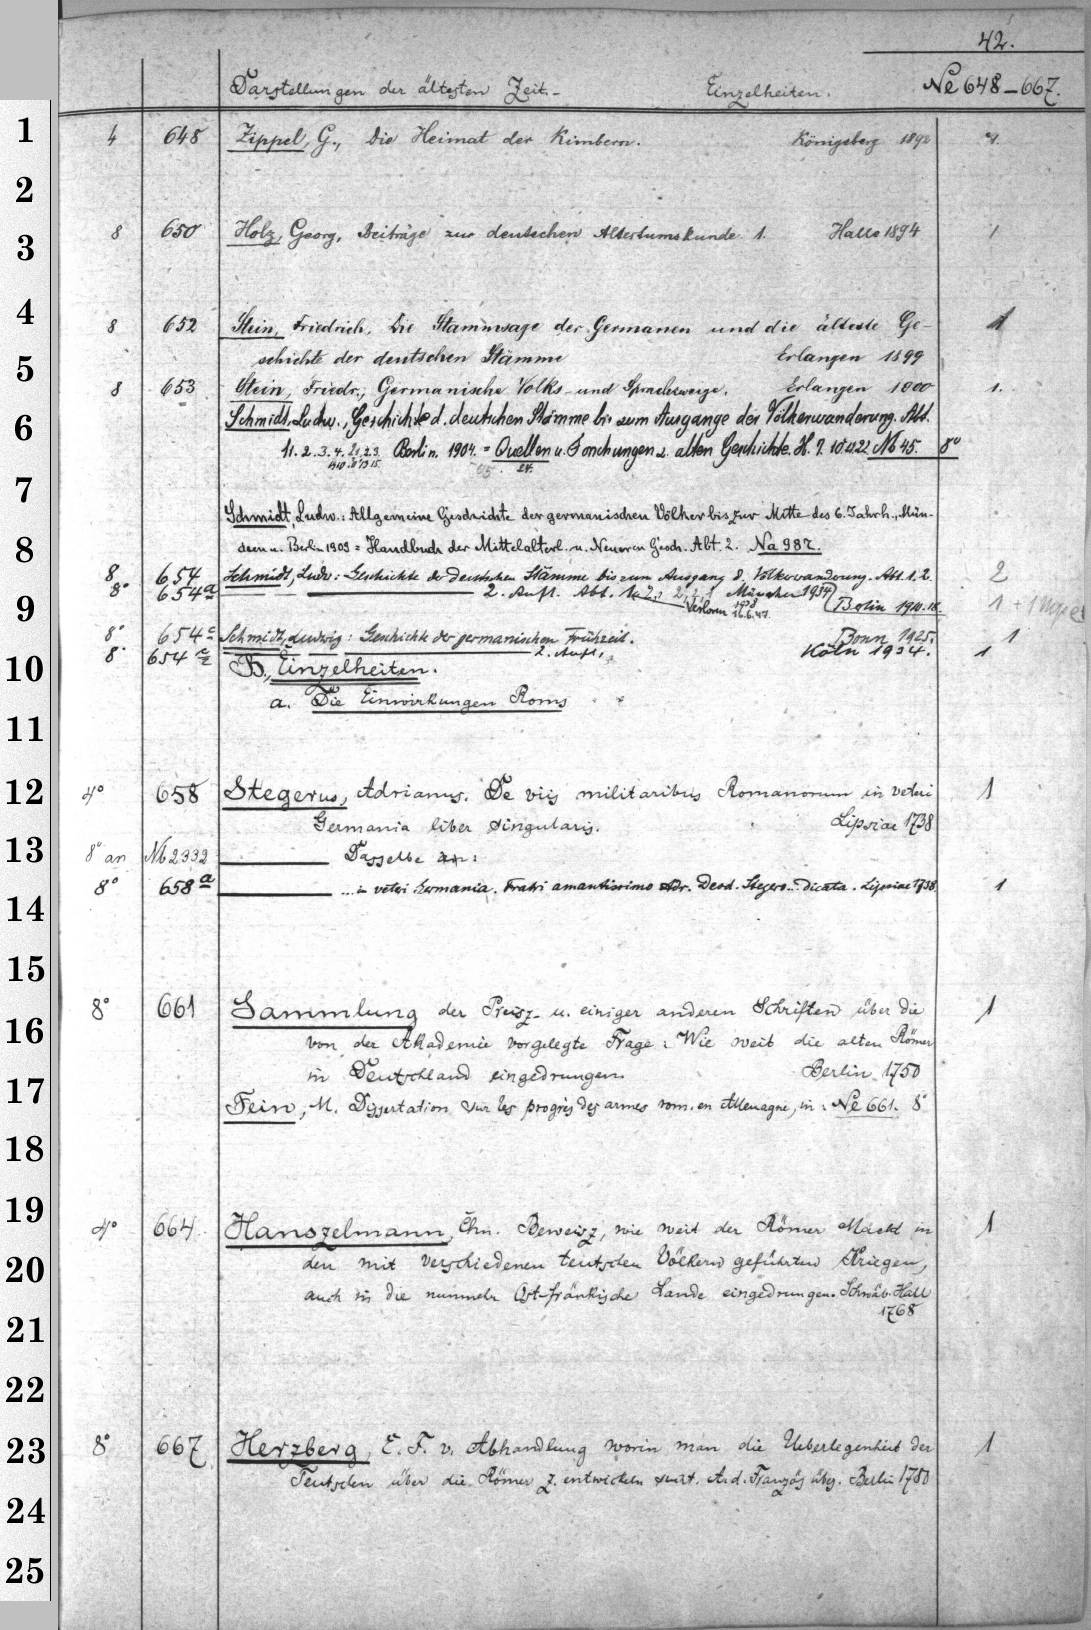 42.
Darstellungen der ältesten Zeit. Einzelheiten. Ne 648–667.
1
4 648 Zippel, G., Die Heimat der Kimbern. Königsberg 1892
2
3
8 650 Holz, Georg, Beiträge zur deutschen Altertumskunde 1. Halle 1894 1
4
8 652 Stein, Friedrich. Die Stammsage der Germanen und die älteste Ge- 1
schichte der deutschen Stämme Erlangen 1899
5
8 653 Stein, Friedr., Germanische Volks- und Sprachzweige. Erlangen 1900 1.
6
Schmidt, Ludw., Geschichte d. deutschen Stämme bis zum Ausgange der Völkerwanderung. Abt.
1. 2. 3. 4. Berlin. 1904. = Quellen u. Forschungen z. alten Geschichte. H. 7. 10. 22. Nb 45. 8°
7
Schmidt, Ludw.: Allgemeine Geschichte der germanischen Völker bis zur Mitte des 6. Jahrh., Mün-
8
chen u. Berlin 1909 = Handbuch der Mittelalterl. u. Neueren Gesch. Abt. 2. Na 987.
8 654 Schmidt, Ludw: Geschichte der deutschen Stämme bis zum Ausgang d. Völkerwanderung. Abt. 1. 2. 2
8° 654a 2. Aufl. Abt. 1 München 1934
9
Verloren 16.6.47. Berlin 1910. 18. 1
8° 654c Schmidt, Ludwig: Geschichte der germanischen Frühzeit. Bonn 1925. 1
8° 654 2. Aufl. Köln 1934. 1
10
B., Einzelheiten.
a. Die Einwirkungen Roms
11
12
4° 658 Stegerus, Adrianus. De viis militaribus Romanorum in veteri 1
Germania liber singularis. Lipsiae 1738
13
8° an Nb 2332 Dasselbe
8° 658a ... in veteri Germania. Fratri amantissimo Adr. Deod. Stegero... dicata. Lipsiae 1738. 1
14
15
8° 661 Sammlung der Preisz- u. einiger anderen Schriften über die 1
16
von der Akademie vorgelegte Frage: Wie weit die alten Römer
in Deutschland eingedrungen. Berlin 1750
17
Fein, M. Dissertation sur les progrès des armes rom. en Allemagne, in: Ne 661. 8°
18
19
4° 664 Hanszelmann, Chn. Beweisz, wie weit der Römer Macht in 1
20
den mit verschiedenen teutschen Völkern geführten Kriegen,
auch in die nunmehr Ost-fränkische Lande eingedrungen. Schwäb. Hall
1768
21
22
23
8° 667 Herzberg, E. F. v. Abhandlung worin man die Ueberlegenheit der 1
Teutschen über die Römer z. entwickeln sucht. A. d. Französ. übs. Berlin 1780
24
25